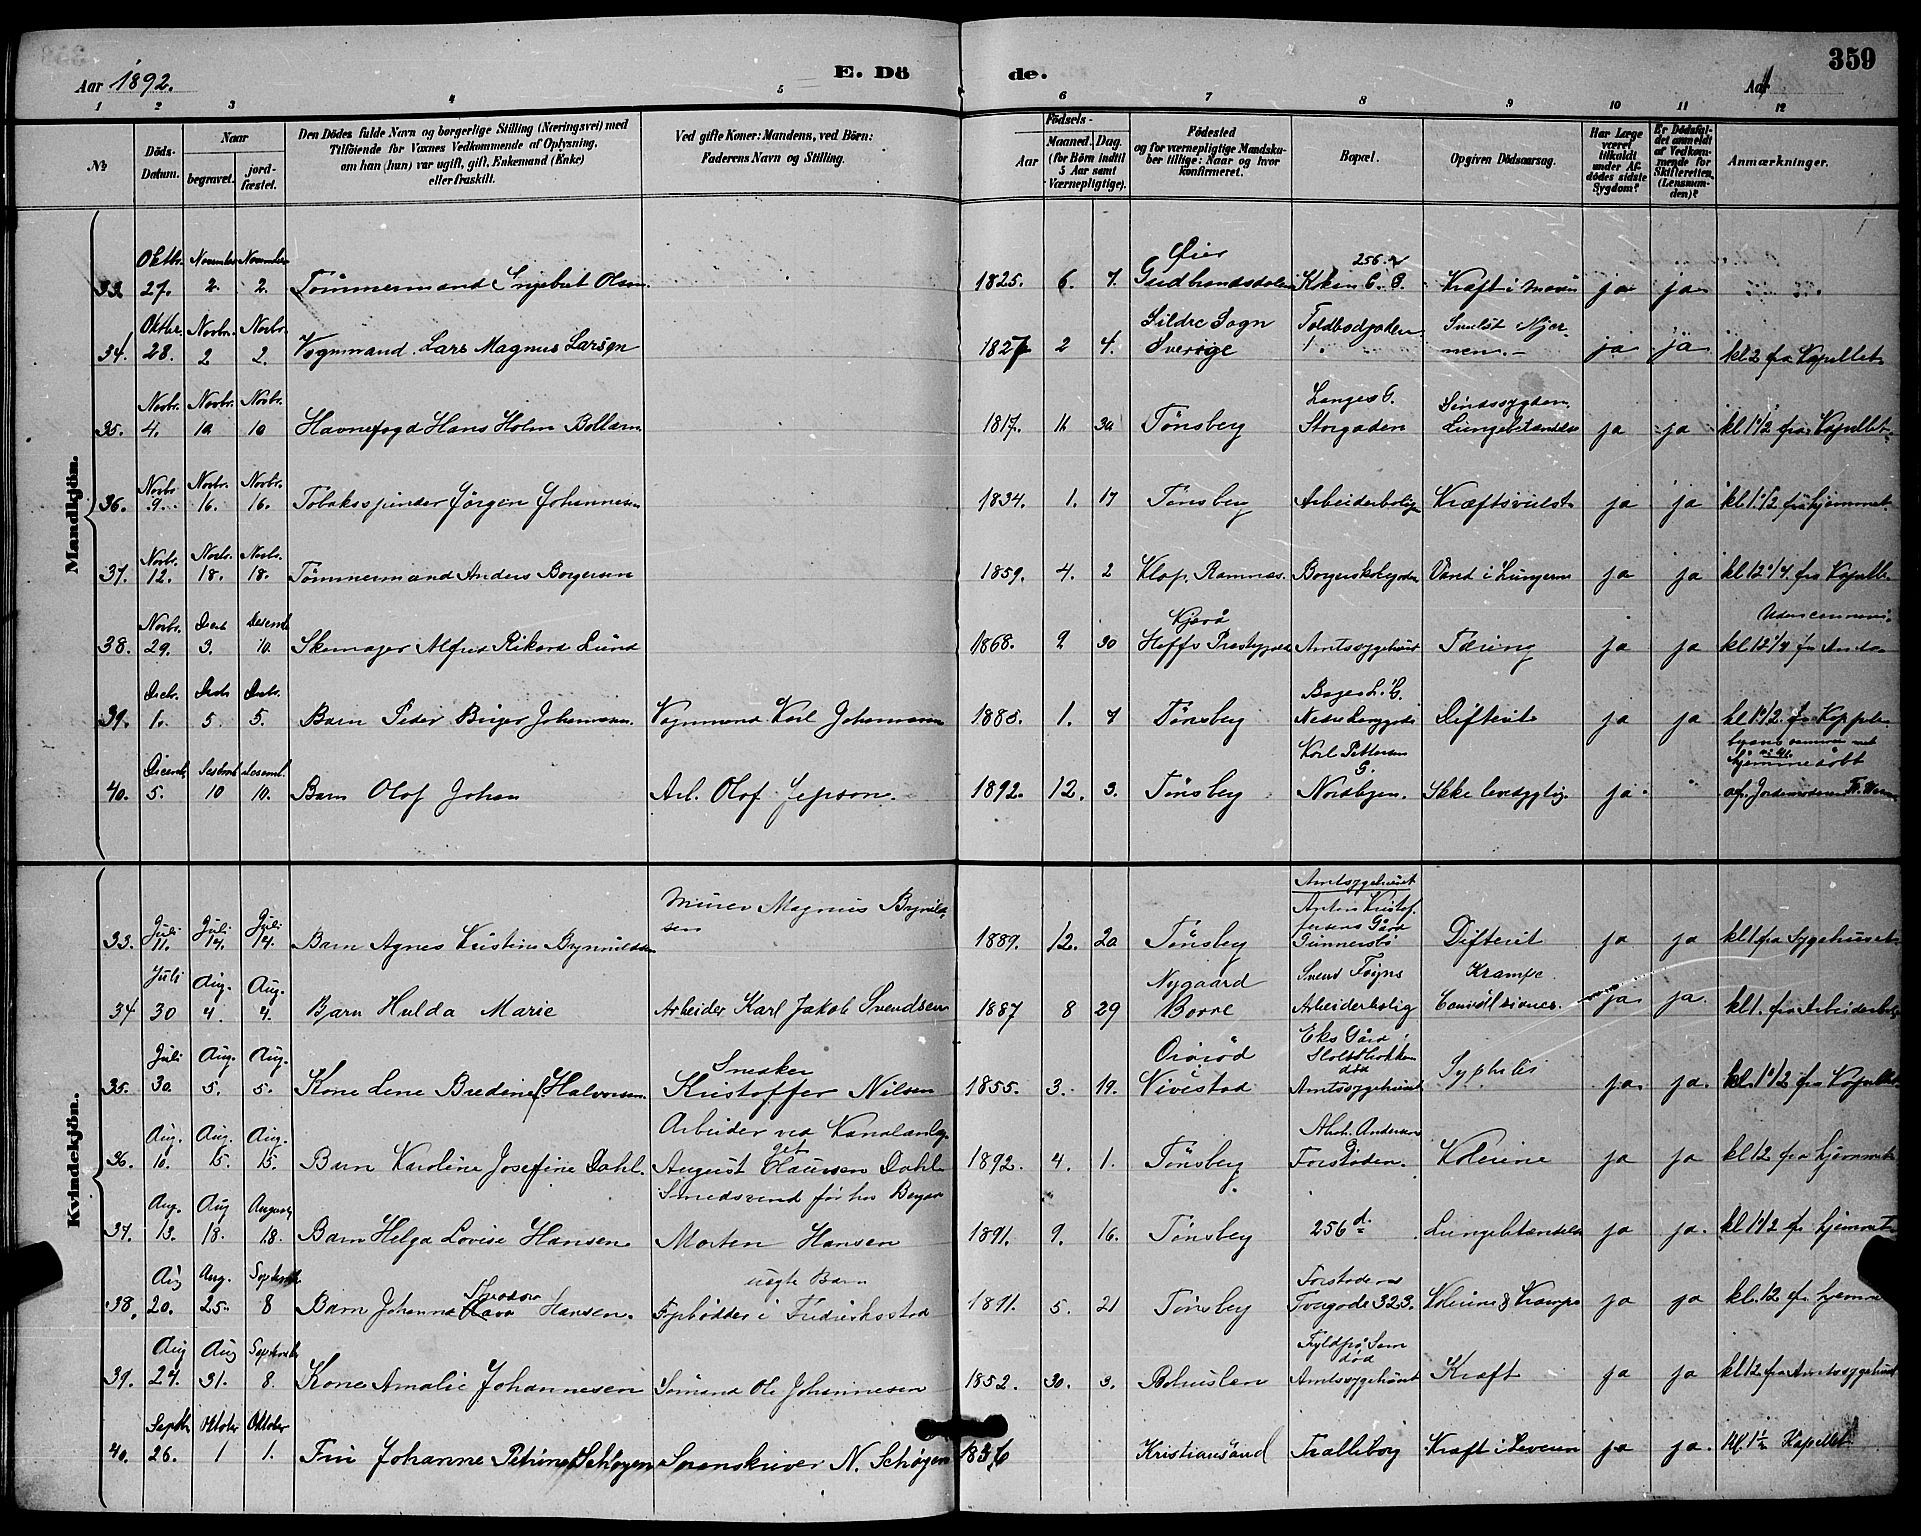 359
Aar 1892.
E. Dö
de.
Aar
1 2 3 4 5 6 7 8 9 10 11 12
№
Döds-Datum.
Naar
begravet.
jord-fæstet.
Den Dödes fulde Navn og borgerlige Stilling (Næringsvei) med
Tilföiende for Voxnes Vedkommende af Oplysning,
om han (hun) var ugift, gift, Enkemand (Enke)
eller fraskilt.
Ved gifte Koner: Mandens, ved Börn:
Faderens Navn og Stilling.
Födsels-
Aar
Maaned.
Dag.
(for Börn indtil
5 Aar samt
Værnepligtige).
Födested
og for værnepligtige Mandska-
ber tillige: Naar og hvor
konfirmeret.
Bopæl.
Opgiven Dödsaarsag.
Har Læge
været
tilkaldt
under Af-
dödes sidste
Sygdom?
Er Dödsfal-
det anmeldt
af Vedkom-
mende for
Skifteretten,
(Lensman-
den)?
Anmærkninger.
Mandkjön.
33. Oktbr. 27. November 2. November 2. Tømmermand Olsen 1825. 6. 7. Øier Gudbrandsdalen 256 Kraft i ja ja
34. Oktbr. 28. Novbr. 2 Novbr. 2. Vognmand Lars Magnus Larsen 1827 2 4. Sogn Sverige Toldbodgaden ja ja kl 2 fra Kapellet
35. Novbr. 4. Novbr. 10 Novbr. 10 Havnefogd Hans Holm Bollærn 1817. 11 30 Tønsberg Langes G. Storgaden Sindssygdom Lungebetændelse ja ja kl 1 1/2 fra Kapellet
36. Novbr. 9. Novbr. 16. Novbr. 16. Tobaksspinder Jörgen Johannesen 1834. 1. 17 Tønsberg Arbeiderbolig Kræftsvulst ja ja kl. 1 1/2 fra hjemmet.
37. Novbr. 12. Novbr. 18. Novbr. 18. Tømmermand Anders Borgersen 1859. 4. 2 Ramnæs. Vand i Lungerne ja ja kl 12 1/4. fra Kapellet
38. Novbr. 29. Decbr 3. Desember 10. Skomager Alfred Rikard Lund 1868. 9 30 Hoffs Præstegjæld Amtssygehuset Tæring ja ja kl 12 1/4 fra
39. Decbr. 1. Decbr 5 Decbr. 5. Barn Peder Birger Johansen. Vognmand Karl Johansen 1888. 1. 7 Tønsberg Difterit ja ja kl 1 1/2. fra
40. Decemb 5. 10 Decemb. 10. Barn Olof Johan Arb. Olof Jepson. 1892. 12. 3. Tønsberg Karl Pettersen G. Nordbyen. Ikke levedygtig. ja hjemmedöbt af Jordemoderen
Kvindekjön.
33. Juli 11. Juli 14. Juli 14. Barn Agnes Kristine Brynildsen Murer Magnus Brynildsen 1889. 12. 20 Tønsberg Amtssygehuset Anton Kristofersens Gård Gunnersbö Difterit ja ja kl 1 fra Sygehuset
34 Juli 30 Aug. 4. Aug. 4. Barn Hulda Marie Arbeider Karl Jakob Svendsen 1887 8 29 Nygaard Borre Svend Foyns Arbeiderbolig Krampe Convulsiones. ja ja. kl 1. fra Arbeiderbolig
35. Juli 30 Aug. 5. Aug. 5. Kone Lene Bredine Halvorsen. Snedker Kristoffer Nilsen 1855. 3. 19. i Vivestad Eks Gård Slotsbakken död Amtssygehuset Syphilis ja. ja. kl. 1 1/2 fra Kapellet
36. Aug. 10. Aug. 15. Aug. 15. Barn Karoline Josefine Dahl. Arbeider ved Kanalanlæget August Clausen Dahl 1892. 4. 1. Tønsberg Abrh. Andersens G Forstaden. Kolerine ja ja kl 12 fra hjemmet
37. Aug. 13. Aug 18. August 18. Barn Helga Lovise Hansen. Smedsvend för hos Morten Hansen 1891. 9. 16. Tønsberg 256 d. Lungebetændelse ja ja. kl 1 1/2 fr hjemmet
38. Aug 20. Aug. 25. Septemb. 8 Barn Johanna Teodora Hansen. uegte Barn Fyrbödder i Fredriksstad 1891. 5. 21 Tønsberg Forstadens Tvergade 323. Kolerine & Krampe ja ja kl. 12 fr. hjemmet
39. Aug 24. Aug 31. Septemb. 8. Kone Amalie Johannesen Sömand Ole Johannesen 1852. 30. 3. Bohuslen död Amtssygehuset Kraft ja ja kl 12 fra Amtssygehuset
40. Septbr. 26. Oktober 1 Oktober 1. Fru Johanne Petrine Schøyen Sorenskriver N. Schøyen 1836 Kristiansand Træleborg Kraft i Leveren ja ja. Kl. 1 1/2 Kapellet